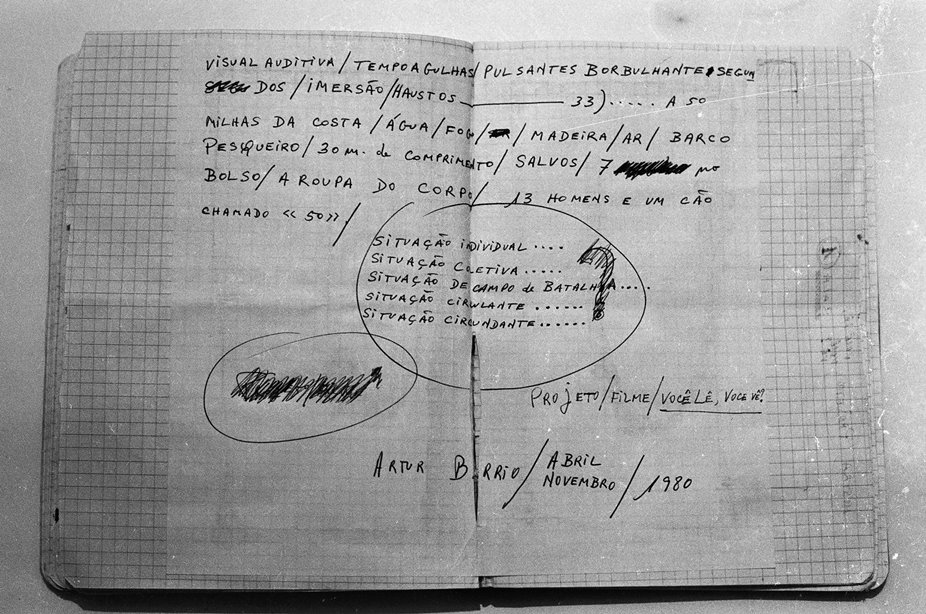 VISUAL AUDITIVA / TEMPO AGULHAS / PULSANTES BORBULHANTES SEGUN
DOS / IMERSÃO / HAUSTOS ————— 33) ..... A 50
MILHAS DA COSTA / ÁGUA / FOGO / / MADEIRA / AR / BARCO
PESQUEIRO / 30 m. de COMPRIMENTO / SALVOS / 7 no
BOLSO / A ROUPA DO CORPO / 13 HOMENS E UM CÃO
CHAMADO << 50 >>. /
SITUAÇÃO INDIVIDUAL ....
SITUAÇÃO COLETIVA .....
SITUAÇÃO DE CAMPO de BATALHA ....
SITUAÇÃO CIRCULANTE ......
SITUAÇÃO CIRCUNDANTE ......
?
PROJETO / FILME / VOCÊ LÊ, VOCE VÊ?
ARTUR BARRIO / ABRIL
NOVEMBRO / 1980